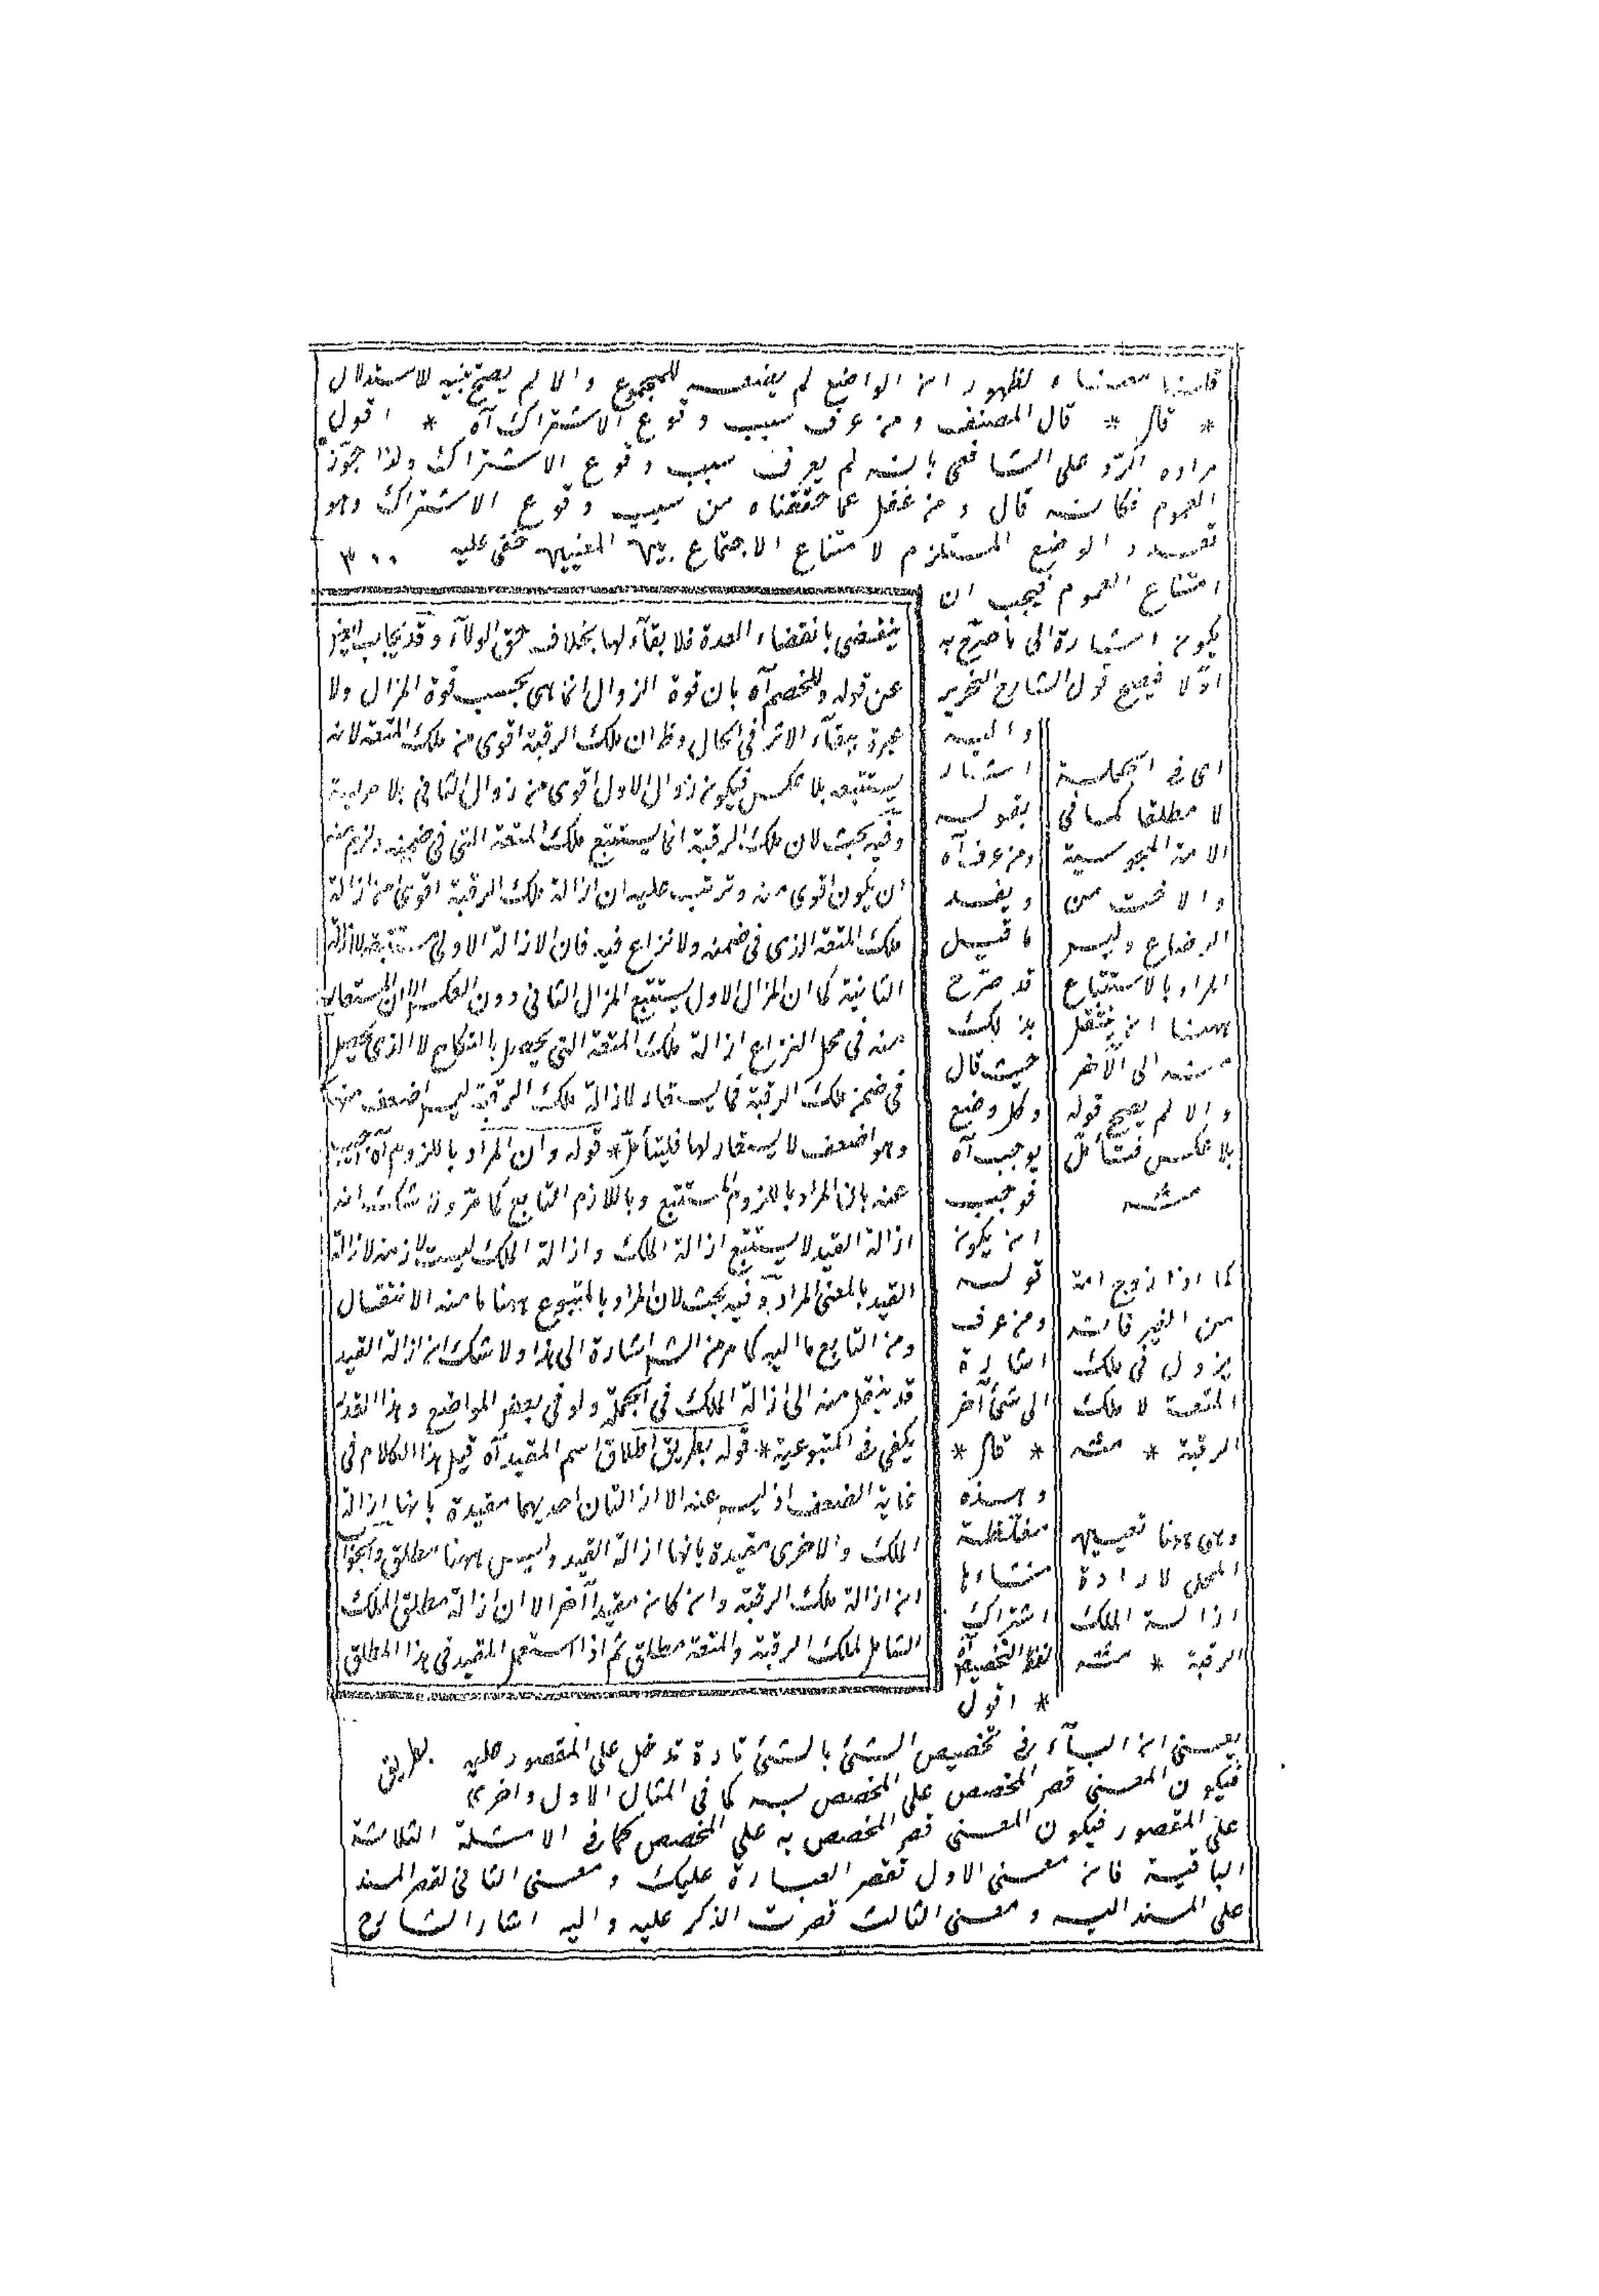 قلنا معناه لظهور ان الواضع لم يضعه للمجموع والا لم يصح فيه الاستدلال
* قال * قال المصنف ومن عرف سبب وقوع الاشتراك آه * اقول
مراده الرد على الشافعي بانه لم يعرف سبب وقوع الاشتراك ولذا جوز
العموم فكانه قال ومن غفل عما حققناه من سبب وقوع الاشتراك وهو
تعدد الوضع المستلزم لامتناع الاجتماع بين المعنيين خفي عليه ٣٠٠
امتناع العموم فيجب ان
يكون اشارة الى ما صرح به
اولا فيصح قول الشارح النحرير
واليه
اشار
بقوله
ومن عرف آه
ويفسد
ما قيل
قد صرح
بذلك
حيث قال
وكل وضع
يوجب آه
فوجب
ان يكون
قوله
ومن عرف
اشارة
الى شئ آخر
* قال *
وهذه
مغلطة
منشاءها
اشتراك
لفظ التخصيص آه
* اقول
يعني ان الباء في تخصيص الشئ بالشئ تارة تدخل على المقصور عليه
فيكون المعنى قصر المخصص على المخصص به كما في المثال الاول واخرى
على المقصور فيكون المعنى قصر المخصص به على المخصص كما في الامثلة الثلاثة
الباقية فان معنى الاول تقصر العبارة عليك ومعنى الثاني لقصر المسند
على المسند اليه ومعنى الثالث قصرت الذكر عليه واليه اشار الشارح
ينقضي بانقضاء العدة فلا بقاء لها بخلاف حق الولاء وقد يجاب ايضا
عن قوله وللخصم آه بان قوة الزوال انما هي بحسب قوة المزال ولا
عبرة ببقاء الاثر في الحال وظ ان ملك الرقبة اقوى من ملك المتعة لانه
يستتبعه بلا عكس فيكون زوال الاول اقوى من زوال الثاني بلا مرية
وفيه بحث لان ملك الرقبة انما يستتبع ملك المتعة التي في ضمنه ولزم منه
ان يكون اقوى منه وترتب عليه ان ازالة ملك الرقبة اقوى من ازالة
ملك المتعة الذي في ضمنه ولا نزاع فيه فان الازالة الاولى مستتبعة لازالة
الثانية كما ان المزال الاول يستتبع المزال الثاني دون العكس الا ان المستعار
منه في محل النزاع ازالة ملك المتعة التي يحصل بالنكاح لا الذي يحصل
في ضمن ملك الرقبة فما يستعار لازالة ملك الرقبة ليس اضعف منها
وهو اضعف لا يستعار لها فليتأمل * قوله وان المراد باللزوم آه اجيب
عنه بان المراد بالملزوم المستتبع وباللازم التابع كما مر ولا شك ان
ازالة القيد لا يستتبع ازالة الملك وازالة الملك ليست لازمة لازالة
القيد بالمعنى المراد وفيه بحث لان المراد بالمتبوع ههنا ما منه الانتقال
ومن التابع ما اليه كما مر من الش اشارة الى هذا ولا شك ان ازالة القيد
قد ينتقل منه الى ازالة الملك في الجملة ولو في بعض المواضع وهذا القدر
يكفي في المتبوعية * قوله بطريق اطلاق اسم المقيد آه قيل هذا الكلام في
غاية الضعف اذ ليس عنه الا ازالتان احديهما مقيدة بانها ازالة
الملك والاخرى مقيدة بانها ازالة القيد وليس ههنا مطلق والجواب
ان ازالة ملك الرقبة وان كان مقيدا آخر الا ان ازالة مطلق الملك
الشامل لملك الرقبة والمتعة مطلق ثم اذا استعمل المقيد في هذا المطلق
بطريق
اى في الجملة
لا مطلقا كما في
الامة المجوسية
والاخت من
الرضاع وليس
المراد بالاستتباع
ههنا ان ينتقل
منه الى الآخر
والا لم يصح قوله
بلا عكس فتأمل
منه
كما اذا زوج امة
من الغير فانه
يزول في ملك
المتعة لا ملك
الرقبة * منه
وهى ههنا تعيين
المحل لارادة
ازالة الملك
الرقبة * منه